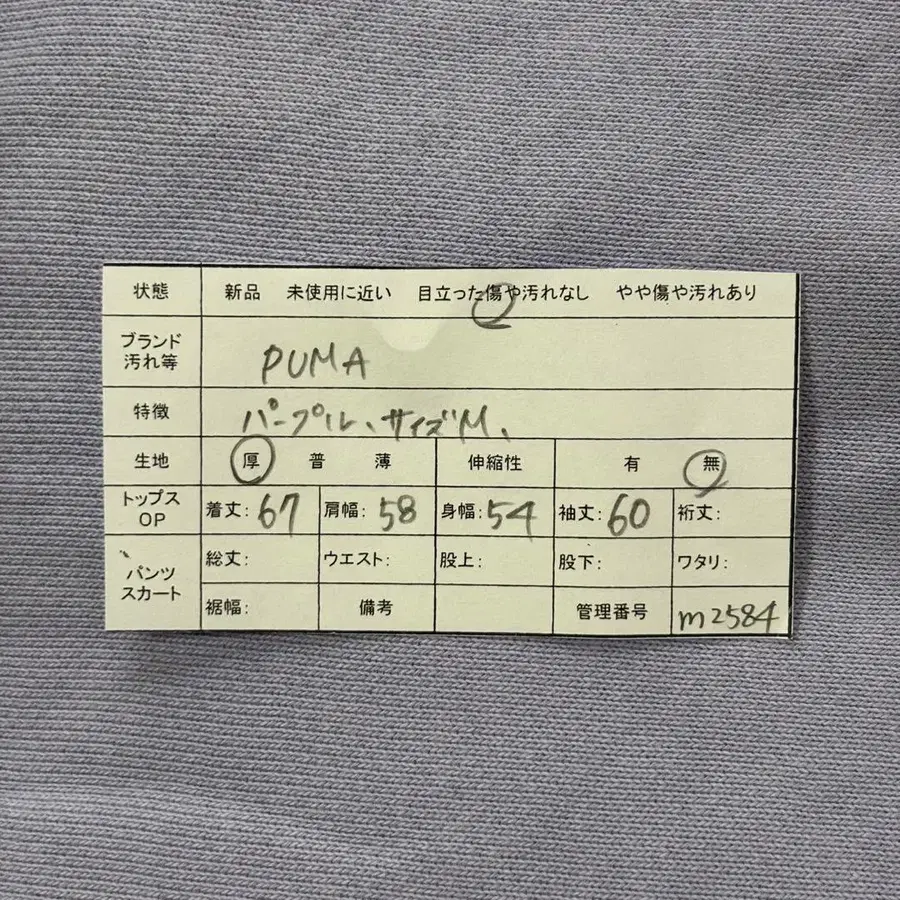 状態 新品 未使用に近い 目立った傷や汚れなし やや傷や汚れあり
ブランド
汚れ等 PUMA
特徴 パープル、サイズM、
生地 厚 普 薄 伸縮性 有 無
トップス
OP 着丈:67 肩幅:58 身幅:54 袖丈:60 裄丈:
パンツ
スカート 総丈: ウエスト: 股上: 股下: ワタリ:
裾幅: 備考 管理番号 m2584